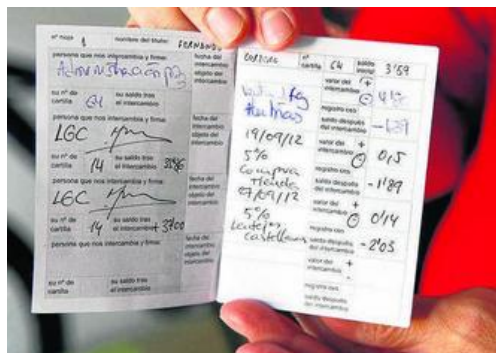 nº hoja 1 nombre del titular: FERNANDO
persona que nos intercambia y firma:
fecha del intercambio
objeto del intercambio
Administración
su nº de cartilla 64 su saldo tras el intercambio
persona que nos intercambia y firma:
fecha del intercambio
objeto del intercambio
LGC
su nº de cartilla 14 su saldo tras el intercambio
persona que nos intercambia y firma:
fecha del intercambio
objeto del intercambio
LGC
su nº de cartilla 14 su saldo tras el intercambio + 3700
persona que nos intercambia y firma:
fecha del intercambio
objeto del intercambio
su nº de cartilla su saldo tras el intercambio
nº cartilla 64 saldo inicial 3'59
valor del intercambio + -
registro ces
saldo después del intercambio
19/09/12
5%
compra
tienda
valor del intercambio + - 0,5
registro ces
saldo después del intercambio -1'89
07/09/12
5%
Lentejas
castellanas
valor del intercambio + - 0'14
registro ces
saldo después del intercambio -2'03
valor del intercambio + -
registro ces
saldo después del intercambio